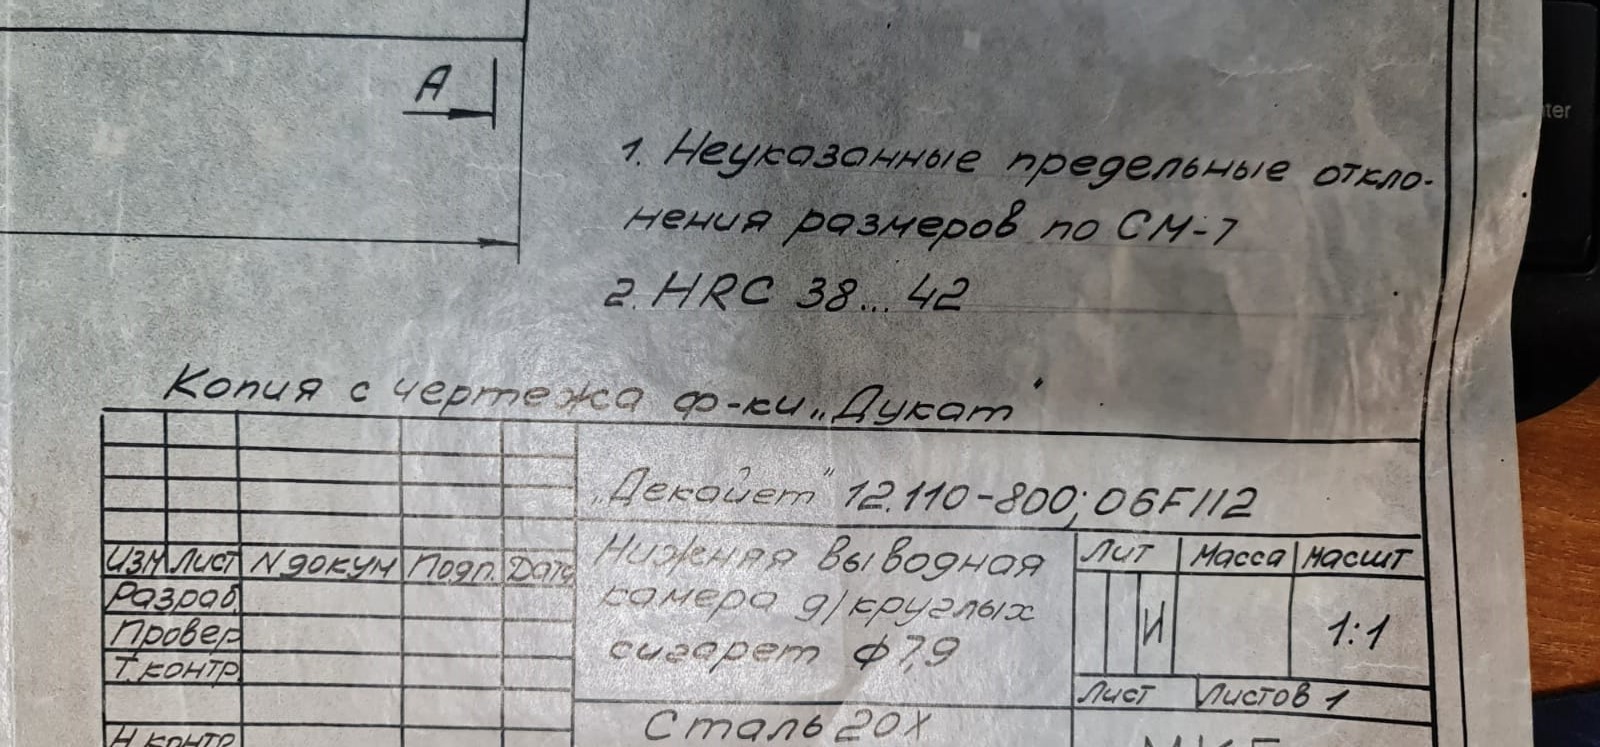 А
1. Неуказанные предельные откло-
нения размеров по СМ-7
2. HRC 38... 42
Копия с чертежа ф-ки „Дукат"
„Декойет" 12.110-800; 06F112
Изм Лист N докум Подп. Дата
Разраб
Провер
Т. контр
Н. контр.
Нижняя выводная
камера д/круглых
сигарет ф 7,9
Лит Масса Масшт
И 1:1
Лист Листов 1
Сталь 20Х